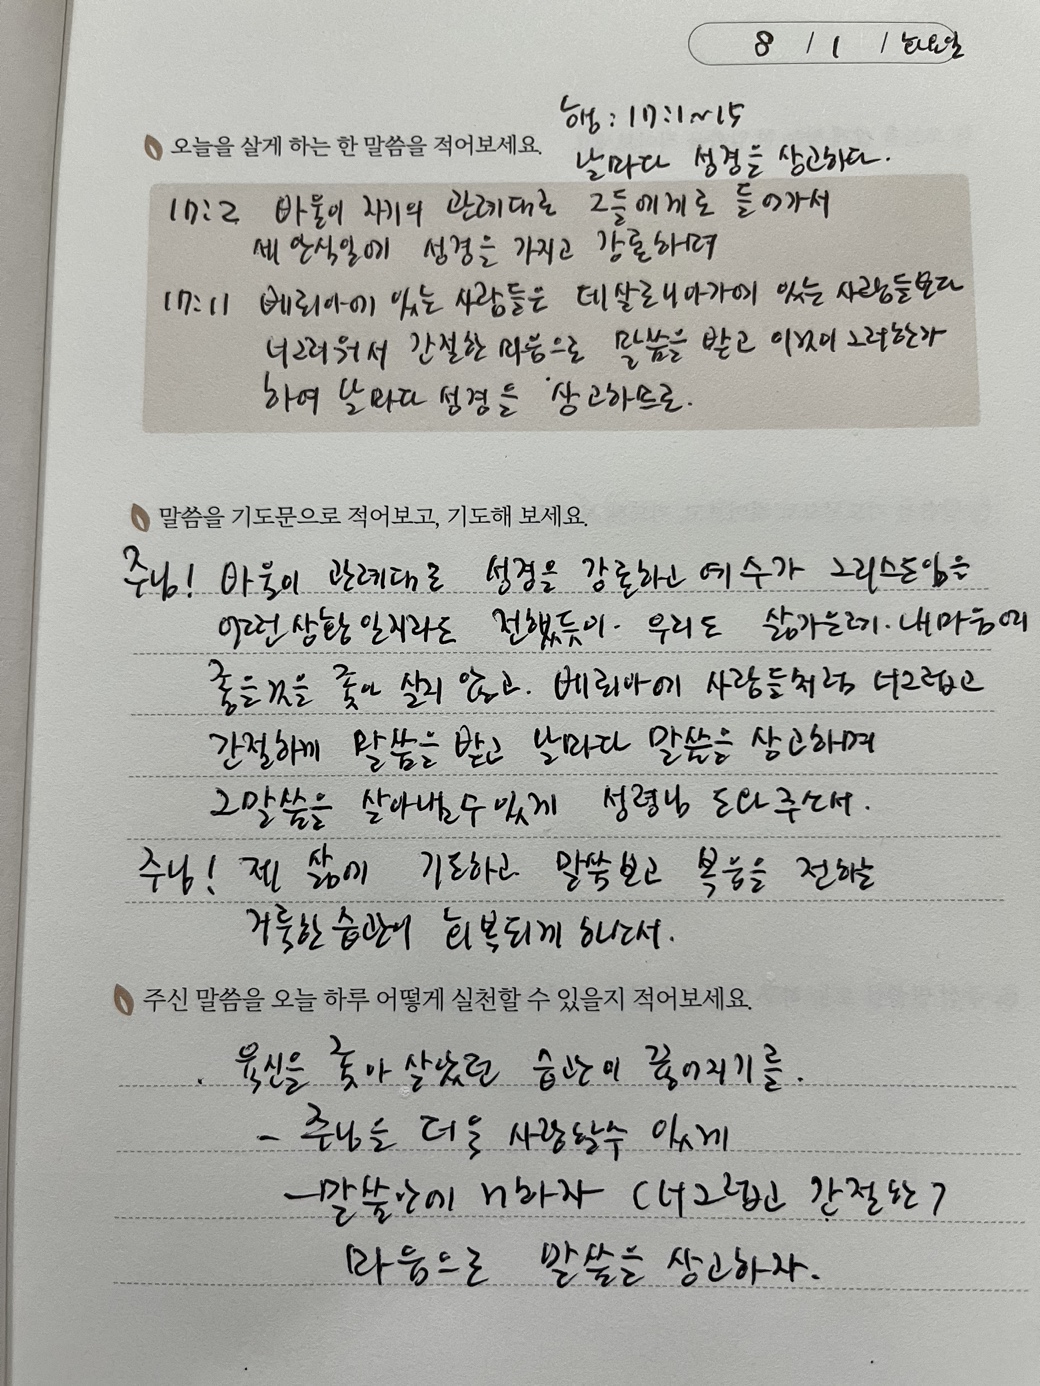 8 / 1 / 화요일
행 : 17:1~15
오늘을 살게 하는 한 말씀을 적어보세요.
날마다 성경을 상고하다.
17:2 바울이 자기의 관례대로 그들에게로 들어가서
세 안식일에 성경을 가지고 강론하며
17:11 베뢰아에 있는 사람들은 데살로니아가에 있는 사람들보다
너그러워서 간절한 마음으로 말씀을 받고 이것이 그러한가
하여 날마다 성경을 상고하므로.
말씀을 기도문으로 적어보고, 기도해 보세요.
주님! 바울이 관례대로 성경을 강론하고 예수가 그리스도임을
어떤 상황일지라도 전했듯이. 우리도 삶가운데. 내 마음에
좋은것을 좇아 살지 않고. 베뢰아에 사람들처럼 너그럽고
간절하게 말씀을 받고 날마다 말씀을 상고하며
그 말씀을 살아낼 수 있게 성령님 도와주소서.
주님! 제 삶에 기도하고 말씀보고 복음을 전하는
거룩한 습관이 회복되게 하소서.
주신 말씀을 오늘 하루 어떻게 실천할 수 있을지 적어보세요.
. 육신을 좇아 살았던 습관이 끊어지기를.
- 주님을 더욱 사랑할수 있게
- 말씀안에 거하자 (너그럽고 간절한)
마음으로 말씀을 상고하자.